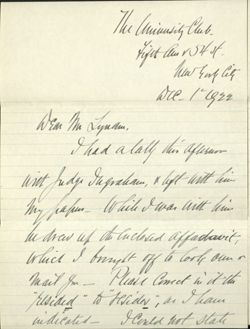 The University Club.
Fifth Ave & 54 St.
New York City
Dec. 1st 1922
Dear Mr Lyndon,
I had a talk this afternoon
with Judge Ingraham, & left with him
my papers — While I was with him
he drew up the enclosed affadavit,
which I brought off to look over &
mail you — Please correct in it the
"resided" to "resides", as I have
indicated — I could not state